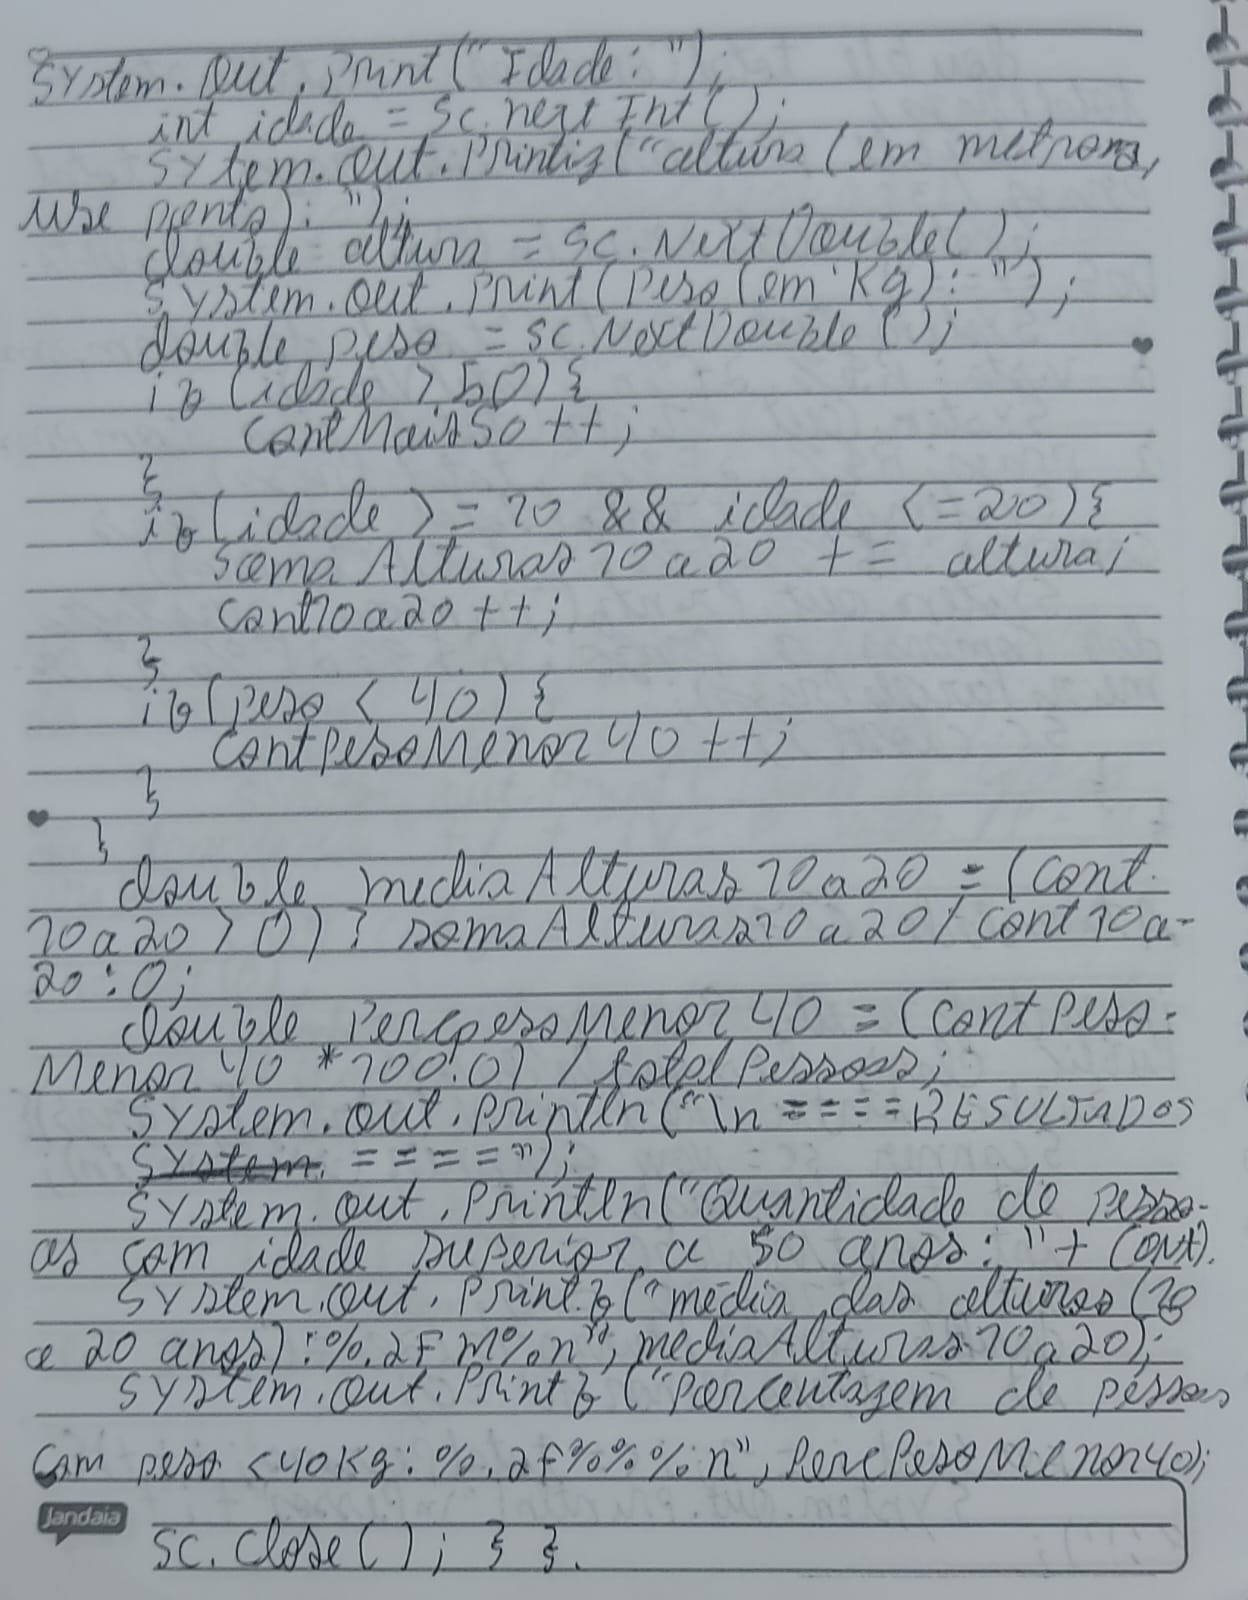 System.Out.Print("Idade: ");
int idade = Sc.next Int();
Sytem.out.Printf("altura (em metrora,
use ponto): ");
double altura = Sc.NextDouble();
System.out.Print(Peso (em Kg): ");
double peso = sc.NextDouble();
if (idade > 50) {
contMais50 ++;
}
if (idade >= 10 && idade <= 20) {
Soma Alturas 10 a 20 += altura;
cont10a20 ++;
}
if (peso < 40) {
contPesoMenor 40 ++;
}
}
double mediaAlturas10a20 = (cont-
10a20 > 0) ? somaAlturas10a20 / cont10a-
20 : 0;
double PercpesoMenor40 = (contPeso-
Menor40 * 100.0) / totalPessoas;
System.out.println("\n ====RESULTADOS
System. ====");
System.out.Println("Quantidade de pesso-
as com idade superior a 50 anos: "+ Cont).
System.out.Printf("média das alturas (10
a 20 anos): %.2F m%n", mediaAlturas10a20);
System.out.Printf("Porcentagem de pessoas
com peso <40Kg: %.2f%%%n", PercPesoMenor40);
Jandaia
Sc.Close(); } }.